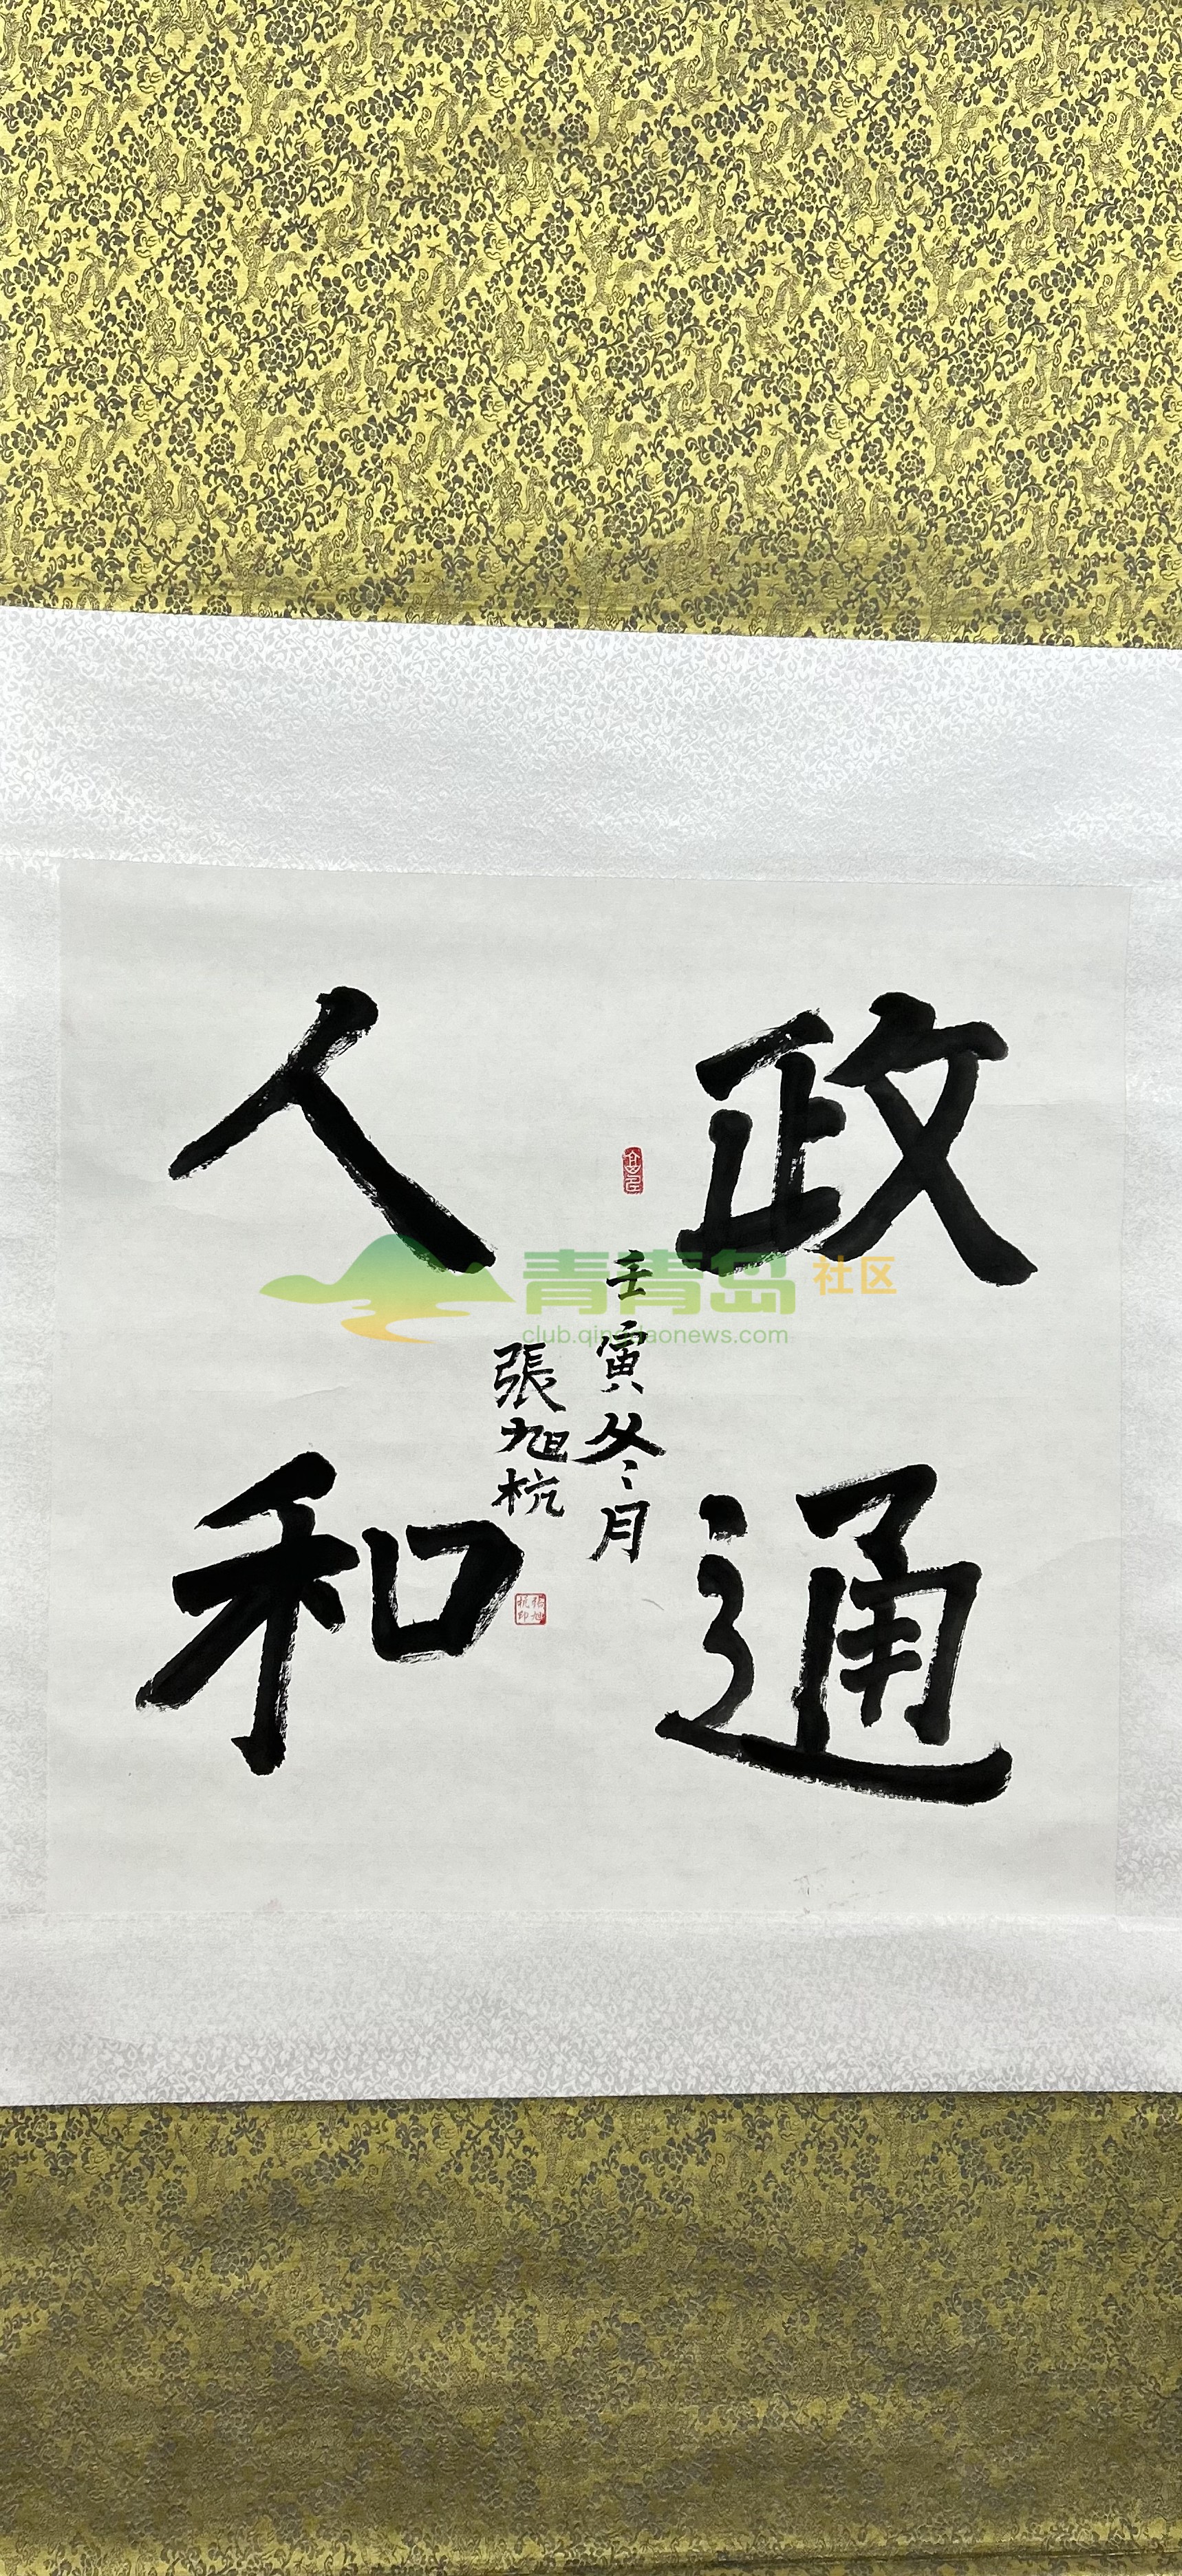 政通
人和
壬寅冬月
張旭杭
張旭杭印
青青岛社区
club.qingdaonews.com